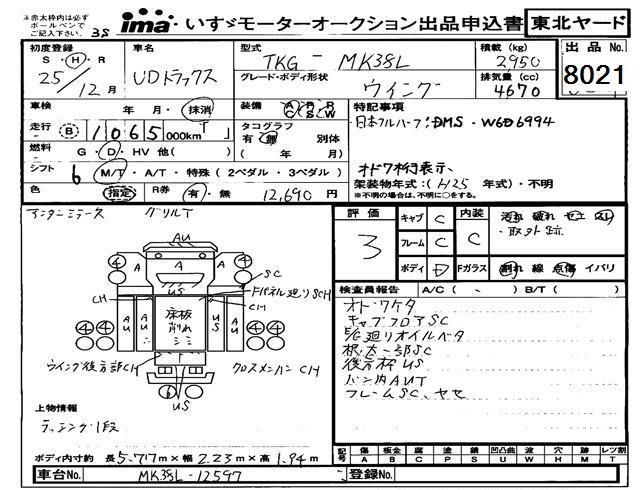 ※赤太枠内は必ず
ボールペンで
ご記入下さい。
35
ima いすゞモーターオークション出品申込書
東北ヤード
初度登録
S・H・R
25/12月
車名
UDトラックス
型式
TKG - MK38L
グレード・ボディ形状
ウイング
積載 (kg)
2950
排気量 (cc)
4670
出品 No.
8021
車検
年 月・抹消
装備
特記事項
日本フルハーフ:DMS-W6D6994
走行 (B) 1065,000km
タコグラフ
有・無 別体
( 年 月)
燃料 G・D・HV 他( )
オドワ桁表示、
シフト 6 M/T・A/T・特殊 ( 2ペダル・3ペダル )
架装物年式:( H25 年式)・不明
※不明の場合は、不明に○をする。
色 指定
R券 有・無 12,690円
アンターミラース グリルT
評価
3
キャブ C
フレーム C
ボディ D
内装 C
Fガラス
汚れ 破れ コゲ スレ
・取外跡
割れ 線 点傷 イバリ
検査員報告 A/C ( - ) B/T ( )
オドワケタ
キャブフロアSC
E/G廻りオイルベタ
根太一部SC
後方枠US
バン内AUT
フレームSC、ヤセ
AU
A
A
A
US
SC
Fパネル廻りSCH
CH
CH
AU
AU
床板
削れ
シミ
US
AU
4
4
4
4
4
4
ウイング後方部CH
クロスメンバーCH
US
上物情報
ラッシング1段
ボディ内寸約 長5.77m×幅2.23m×高1.94m
記号
傷 板金 腐 塗 錆 凹凸曲 波 穴 跡 レツ割
A B C P S U W H M T
車台No. MK38L-12597
登録No.